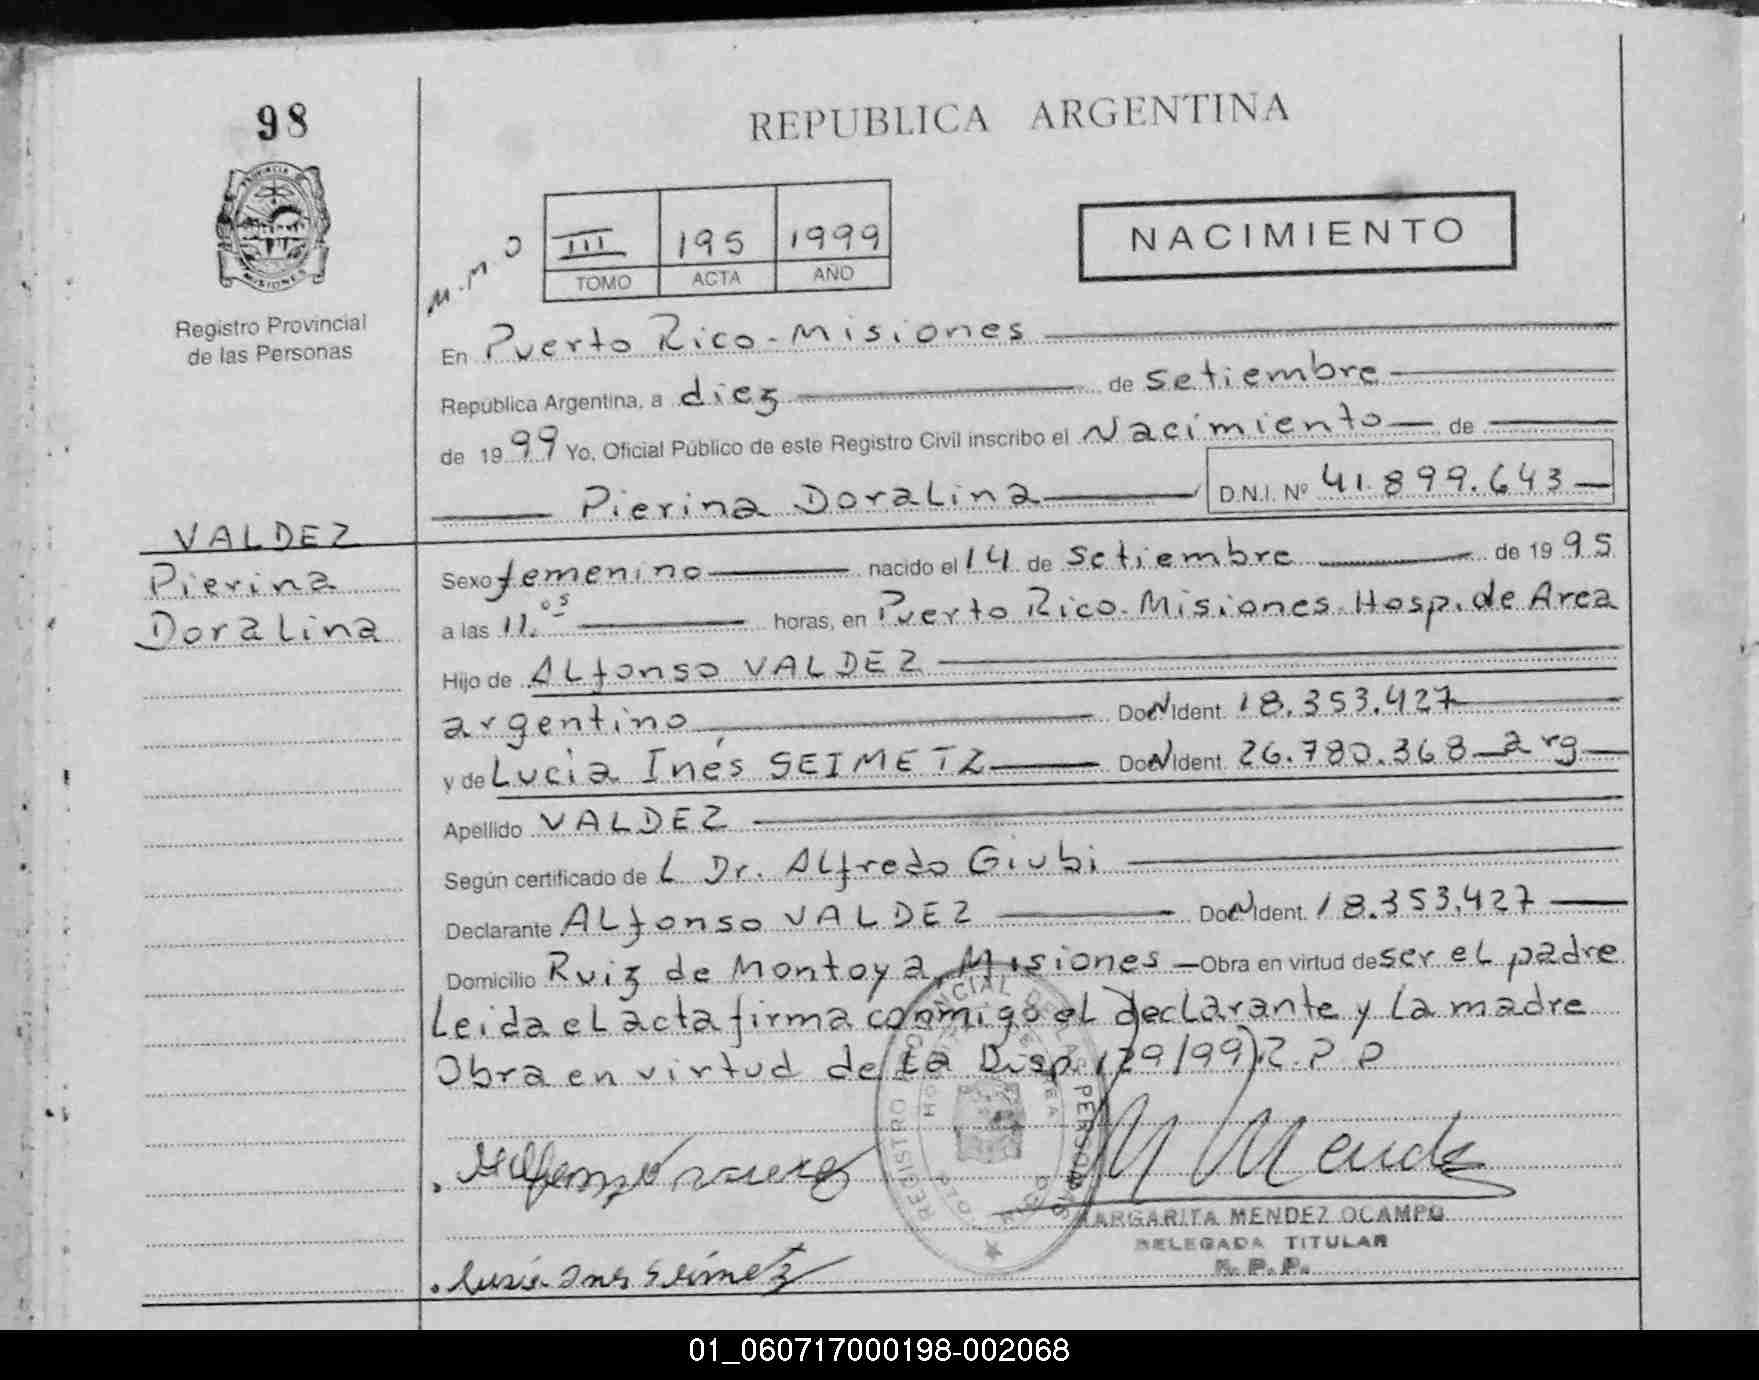 98
REPUBLICA ARGENTINA
PROVINCIA DE
MISIONES
Registro Provincial
de las Personas
M.M.O
III 195 1999
TOMO ACTA AÑO
NACIMIENTO
En Puerto Rico - Misiones
República Argentina, a diez de setiembre
de 1999 Yo, Oficial Público de este Registro Civil inscribo el Nacimiento de
Pierina Doralina D.N.I. Nº 41.899.643
VALDEZ
Pierina
Doralina
Sexo femenino nacido el 14 de setiembre de 1995
a las 11.05 horas, en Puerto Rico - Misiones Hosp. de Area
Hijo de Alfonso VALDEZ
argentino DocNIdent. 18.353.427
y de Lucia Inés SEIMETZ DocNIdent. 26.780.368 - arg
Apellido VALDEZ
Según certificado de L Dr. Alfredo Giubi
Declarante Alfonso VALDEZ DocNIdent. 18.353.427
Domicilio Ruiz de Montoya, Misiones - Obra en virtud de ser el padre
Leida el acta firma conmigo el declarante y la madre
Obra en virtud de la Disp. 129/99 R.P.P
REGISTRO PROVINCIAL DE LAS PERSONAS
M Mendez
MARGARITA MENDEZ OCAMPO
DELEGADA TITULAR
R.P.P.
Lucia Ines Seimetz
01_060717000198-002068